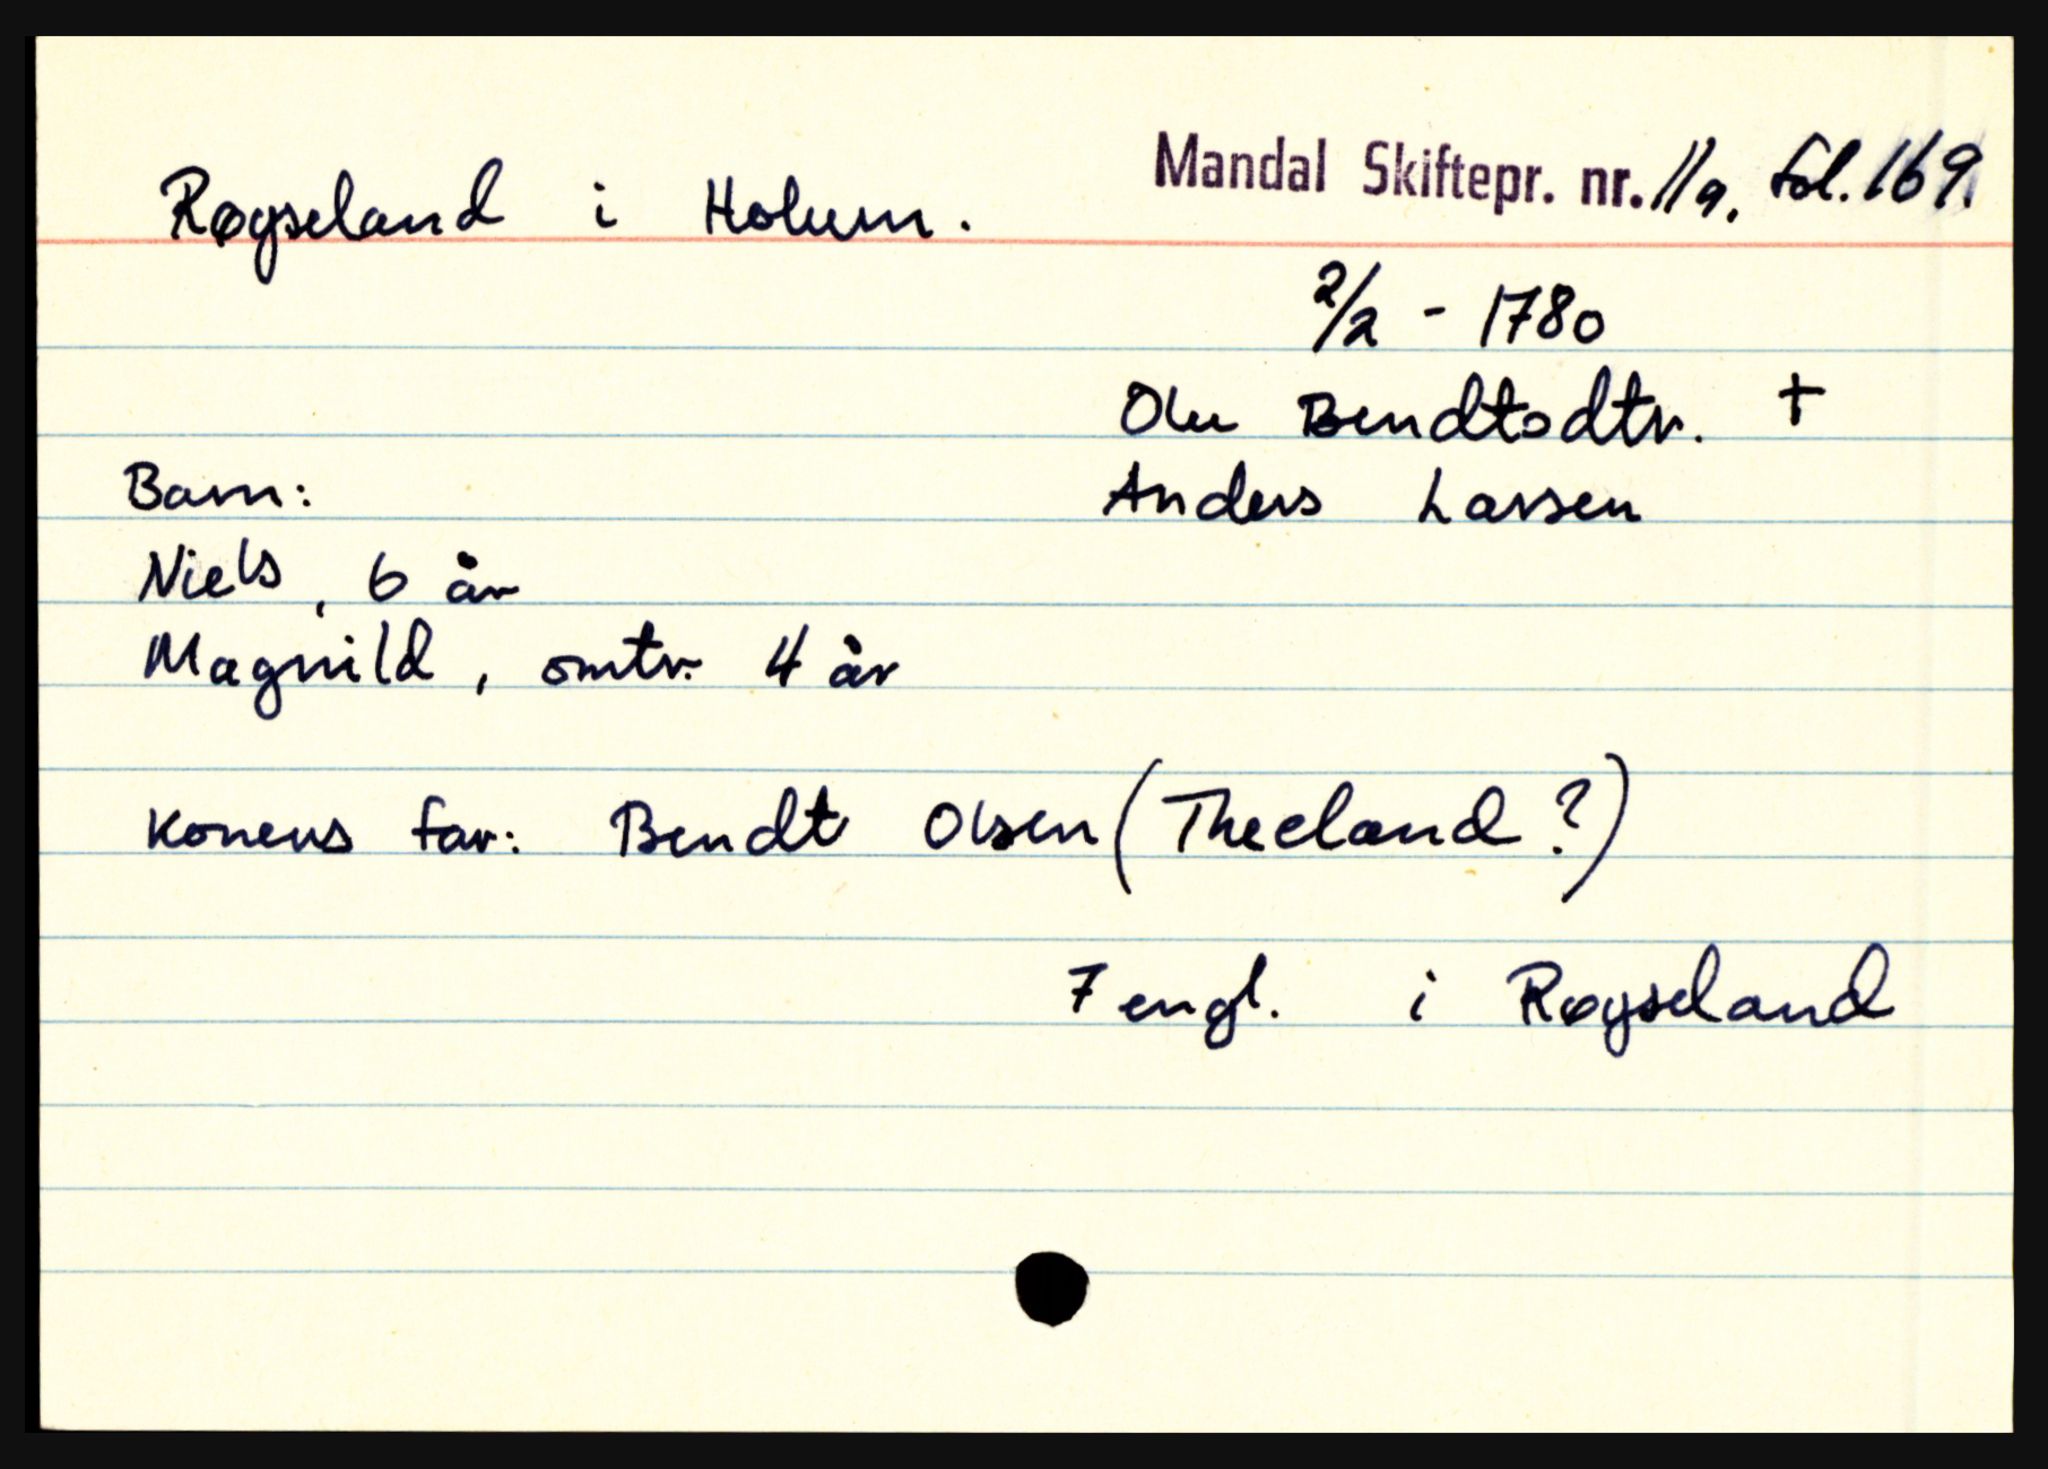 Røyseland i Holum. Mandal Skiftepr. nr. 11a, fol. 169.
2/2 - 1780
Olu Bendtsdtr. +
Barn: Anders Larsen
Niels, 6 år
Magnild, omtr. 4 år
Konens far: Bendt Olsen (Theeland?)
7 engl. i Røyseland